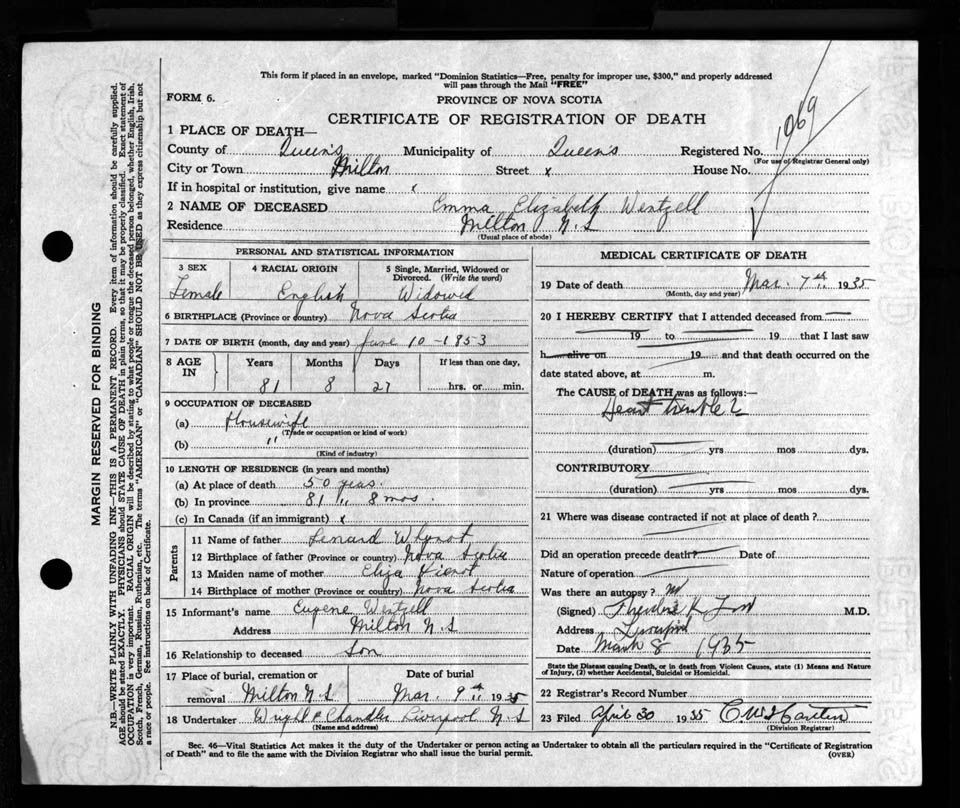 This form if placed in an envelope, marked "Dominion Statistics—Free, penalty for improper use, $300," and properly addressed
will pass through the Mail "FREE"
FORM 6.
PROVINCE OF NOVA SCOTIA
CERTIFICATE OF REGISTRATION OF DEATH
1069
1 PLACE OF DEATH—
County of Queen's Municipality of Queen's Registered No.
(For use of Registrar General only)
City or Town Milton Street x House No.
If in hospital or institution, give name x
2 NAME OF DECEASED Emma Elizabeth Wentzell
Residence Milton N.S
(Usual place of abode)
PERSONAL AND STATISTICAL INFORMATION
3 SEX 4 RACIAL ORIGIN 5 Single, Married, Widowed or
Divorced. (Write the word)
Female English Widowed
6 BIRTHPLACE (Province or country) Nova Scotia
7 DATE OF BIRTH (month, day and year) June 10 - 1853
8 AGE IN Years Months Days If less than one day,
81 8 27 hrs. or min.
9 OCCUPATION OF DECEASED
(a) Housewife
(Trade or occupation or kind of work)
(b) "
(Kind of industry)
10 LENGTH OF RESIDENCE (in years and months)
(a) At place of death 50 years.
(b) In province 81 " 8 mos.
(c) In Canada (if an immigrant) x
Parents
11 Name of father Whynot
12 Birthplace of father (Province or country) Nova Scotia
13 Maiden name of mother Eliza
14 Birthplace of mother (Province or country) Nova Scotia
15 Informant's name Eugene Wentzell
Address Milton N.S
16 Relationship to deceased Son
17 Place of burial, cremation or Date of burial
removal Milton N.S Mar. 9th 1935
18 Undertaker Wright & Chandler Liverpool N.S
(Name and address)
MEDICAL CERTIFICATE OF DEATH
19 Date of death Mar. 7th 1935
(Month, day and year)
20 I HEREBY CERTIFY that I attended deceased from
19 to 19 that I last saw
h alive on 19 and that death occurred on the
date stated above, at m.
The CAUSE OF DEATH was as follows:—
Heart trouble ?
(duration) yrs mos dys.
CONTRIBUTORY
(duration) yrs mos dys.
21 Where was disease contracted if not at place of death?
Did an operation precede death? Date of
Nature of operation
Was there an autopsy? No
(Signed) M.D.
Address Liverpool
Date March 8 1935
State the Disease causing Death, or in death from Violent Causes, state (1) Means and Nature
of Injury, (2) whether Accidental, Suicidal or Homicidal.
22 Registrar's Record Number
23 Filed April 30 1935
(Division Registrar)
Sec. 46—Vital Statistics Act makes it the duty of the Undertaker or person acting as Undertaker to obtain all the particulars required in the "Certificate of Registration
of Death" and to file the same with the Division Registrar who shall issue the burial permit. (OVER)
MARGIN RESERVED FOR BINDING
N.B.—WRITE PLAINLY WITH UNFADING INK—THIS IS A PERMANENT RECORD. Every item of information should be carefully supplied.
AGE should be stated EXACTLY. PHYSICIANS should STATE CAUSE OF DEATH in plain terms, so that it may be properly classified. Exact statement of
OCCUPATION is very important. RACIAL ORIGIN will be described by stating to what people or tongue the deceased person belonged, whether English, Irish,
Scotch, French, German, Russian, Ruthenian, etc. The terms "AMERICAN" or "CANADIAN" SHOULD NOT BE USED as they express citizenship but not
a race or people. See instructions on back of Certificate.